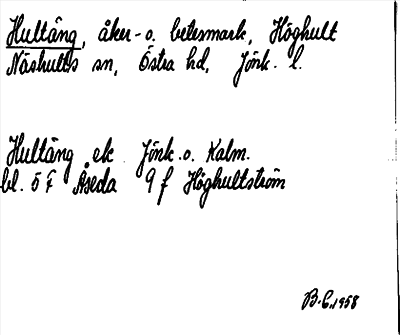 Hultäng, åker- o. betesmark, Höghult
Näshults sn, Östra hd, Jönk. l.
Hultäng ek. Jönk. o. Kalm.
bl. 5 F Åseda 9 f Höghultström
B.C. 1958